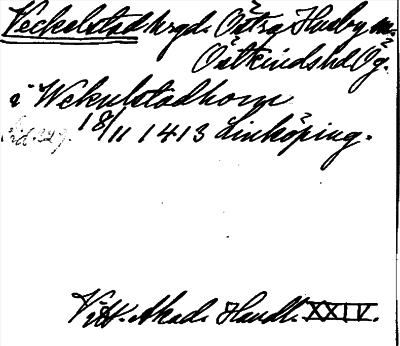 Veckelstad krgd. Östra Husby sn.
Östkinds hd Ög.
i Wekulstadhom
Sid. 229. 18/11 1413 Linköping.
Vitt. Akad. Handl. XXIV.